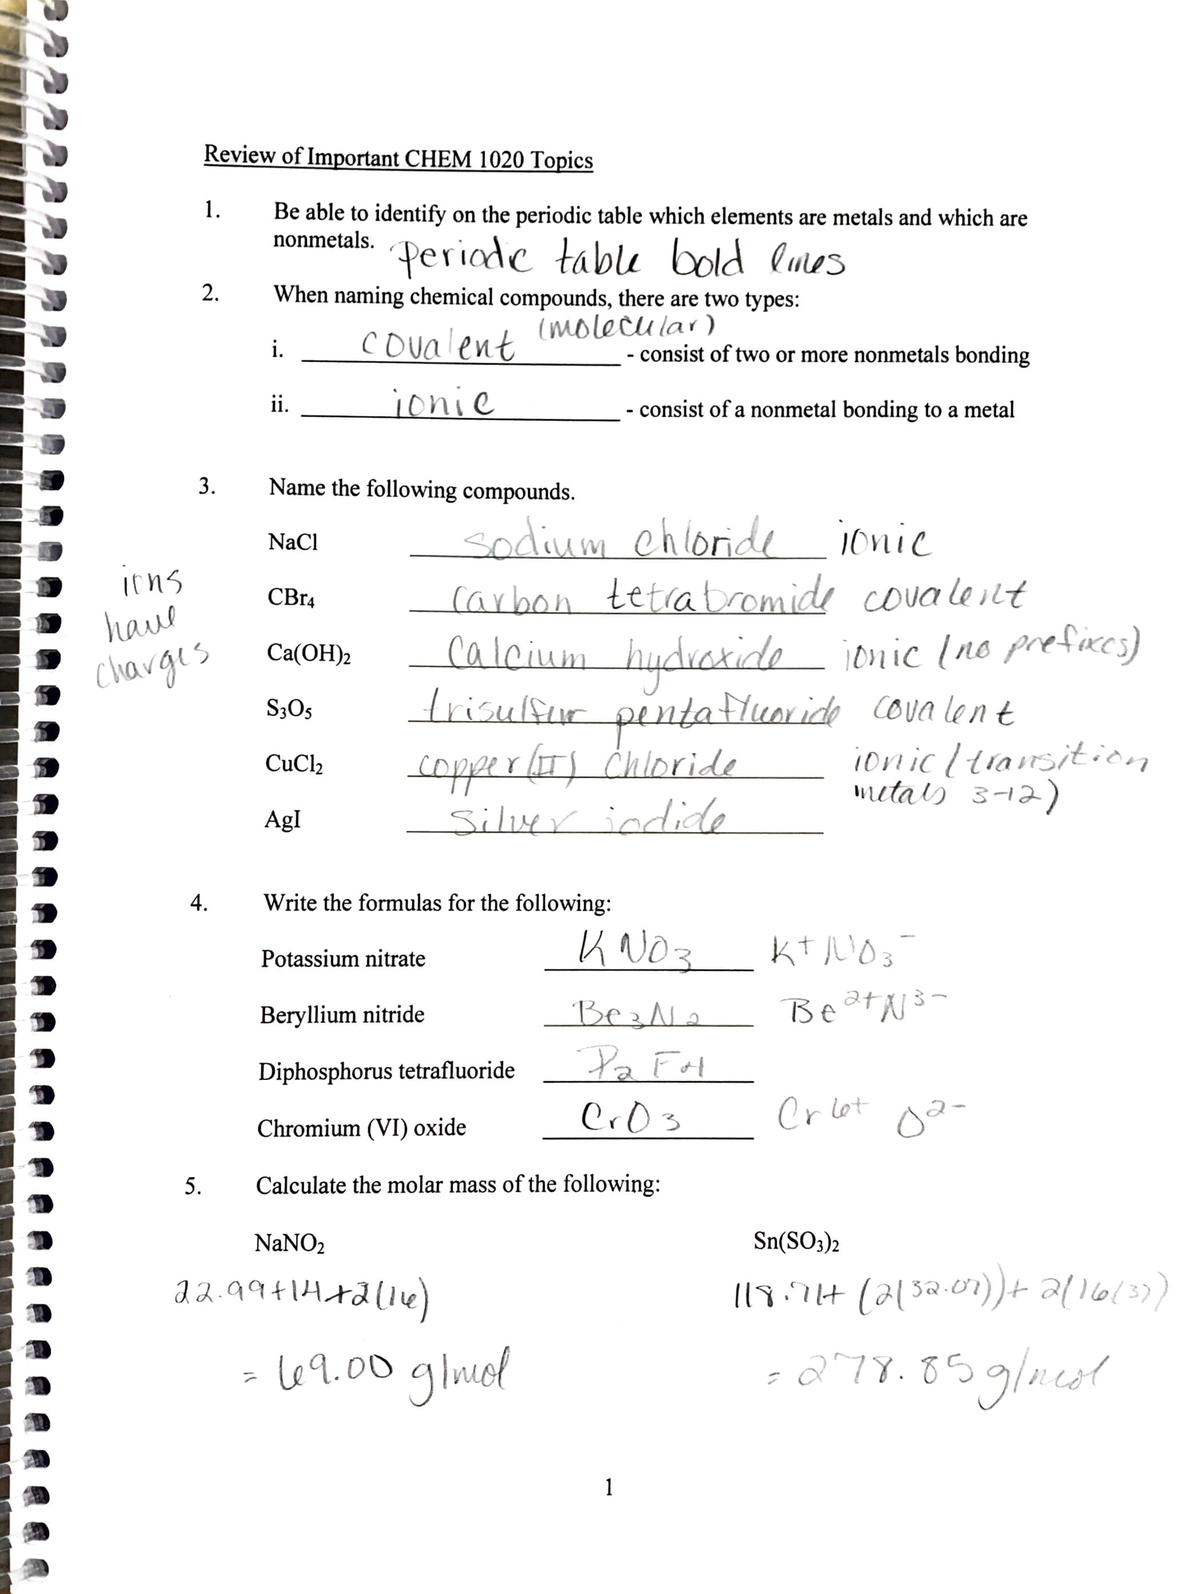 Review of Important CHEM 1020 Topics
1. Be able to identify on the periodic table which elements are metals and which are
nonmetals. periodic table bold lines
2. When naming chemical compounds, there are two types:
i. covalent (molecular) - consist of two or more nonmetals bonding
ii. ionic - consist of a nonmetal bonding to a metal
3. Name the following compounds.
NaCl sodium chloride ionic
CBr₄ carbon tetrabromide covalent
ions have charges
Ca(OH)₂ calcium hydroxide ionic (no prefixes)
S₃O₅ trisulfur pentafluoride covalent
CuCl₂ copper (II) chloride ionic (transition
metals 3-12)
AgI silver iodide
4. Write the formulas for the following:
Potassium nitrate KNO₃ K⁺ NO₃⁻
Beryllium nitride Be₃N₂ Be²⁺N³⁻
Diphosphorus tetrafluoride P₂F₄
Chromium (VI) oxide CrO₃ Cr⁶⁺ O²⁻
5. Calculate the molar mass of the following:
NaNO₂ Sn(SO₃)₂
22.99+14+2(16) 118.71+(2(32.07))+2(16(3))
= 69.00 g/mol = 278.85 g/mol
1